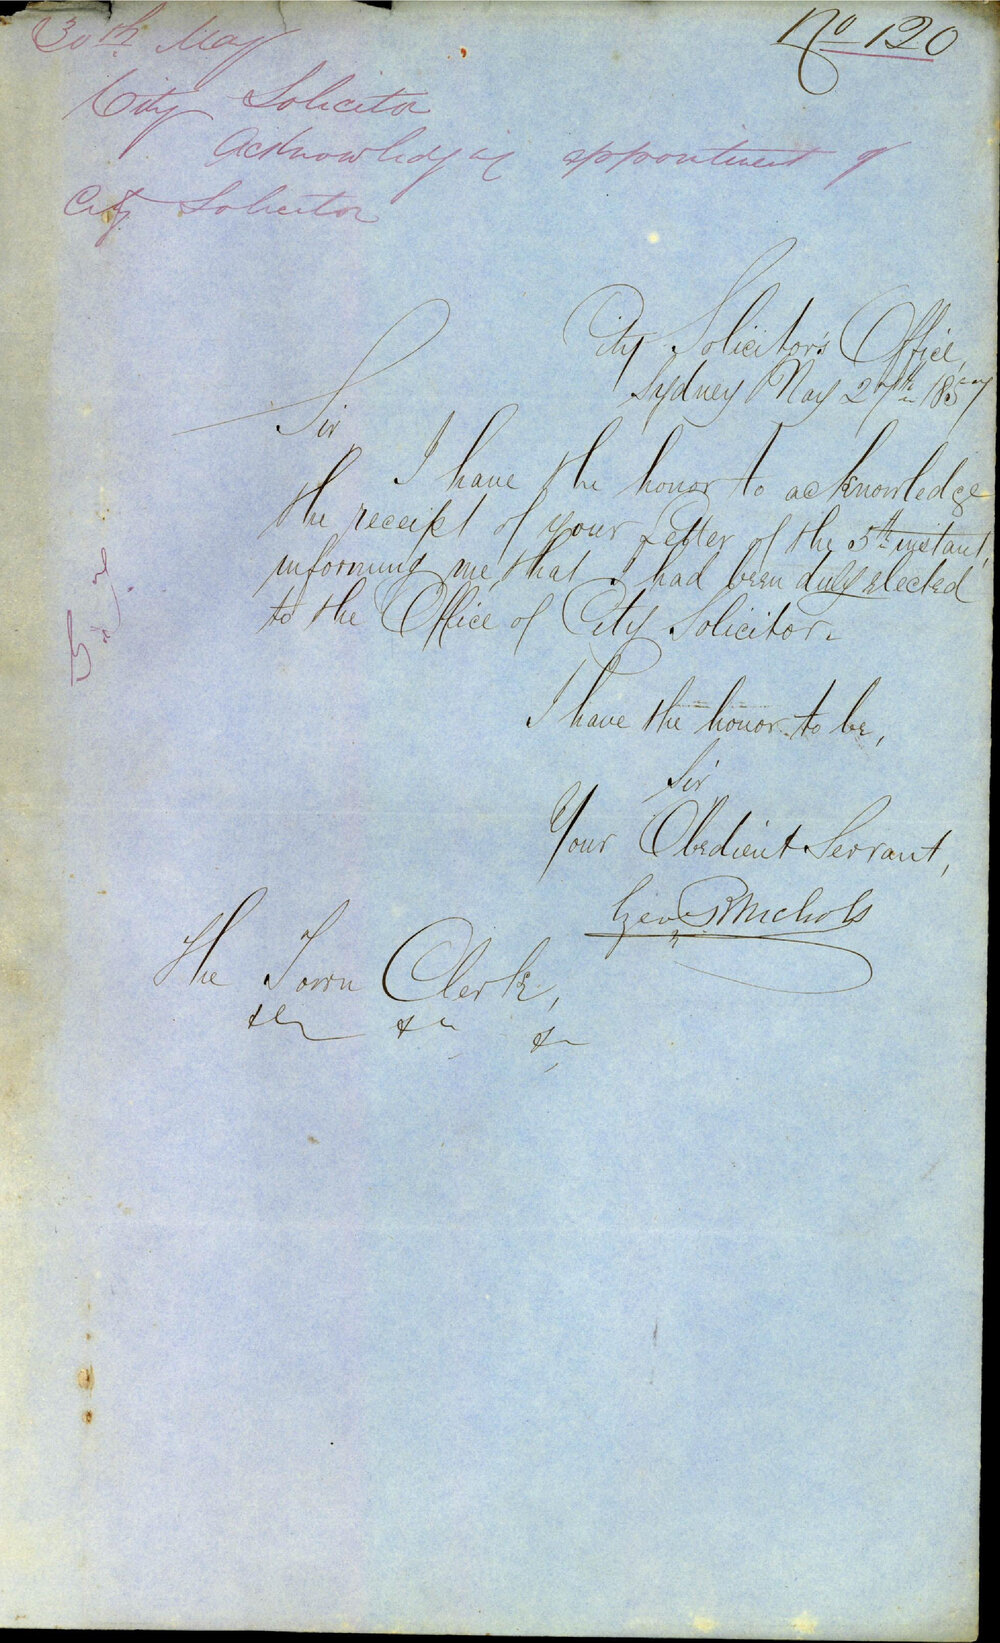 No 120
30th May
City Solicitor
Acknowledging appointment of
City Solicitor
City Solicitor's Office,
Sydney May 27th 1857
Sir
I have the honor to acknowledge
the receipt of your Letter of the 5th instant,
informing me, that I had been duly elected
to the Office of City Solicitor.
I have the honor to be,
Sir
Your Obedient Servant,
Geo R Nichols
The Town Clerk,
&c &c &c